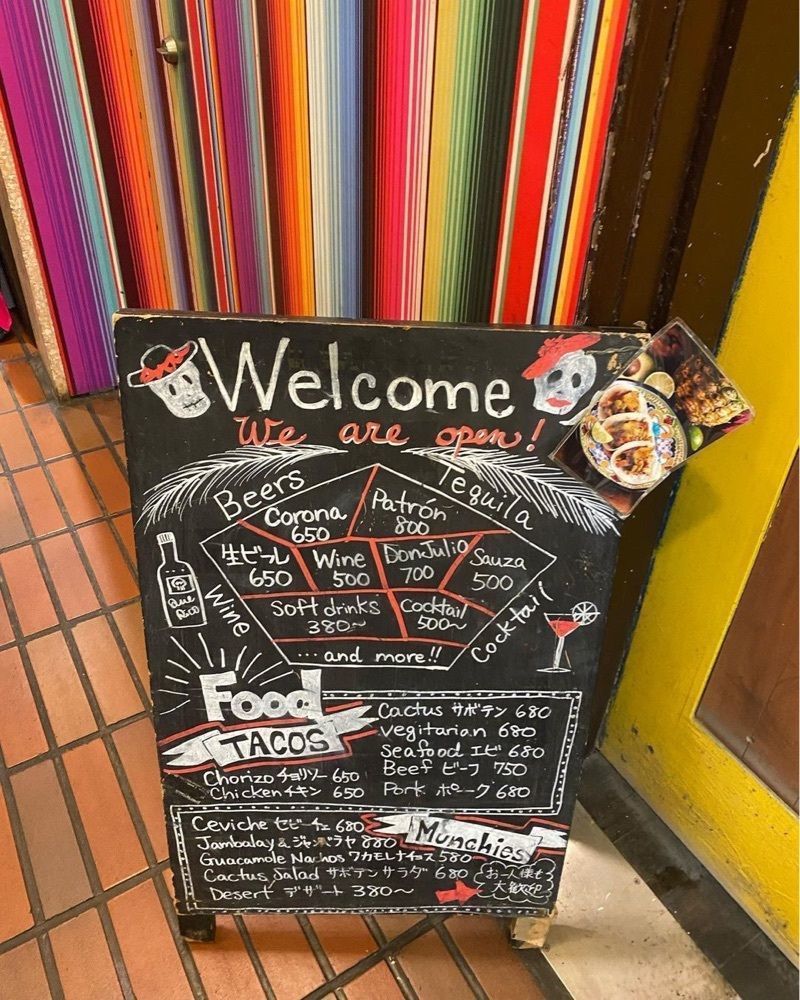 Welcome
We are open!
Beers
Tequila
Corona
650
Patrón
800
生ビール
650
Wine
500
Don Julio
700
Sauza
500
Wine
Soft drinks
380～
Cocktail
500～
Cocktail
...and more!!
Food
TACOS
Cactus サボテン 680
vegitarian 680
Seafood エビ 680
Beef ビーフ 750
Pork ポーク 680
Chorizo チョリソー 650
Chicken チキン 650
Munchies
Ceviche セビーチェ 680
Jambalaya ジャンバラヤ 880
Guacamole Nachos ワカモレナチョス 580
Cactus Salad サボテンサラダ 680
Desert デザート 380～
お一人様も
大歓迎